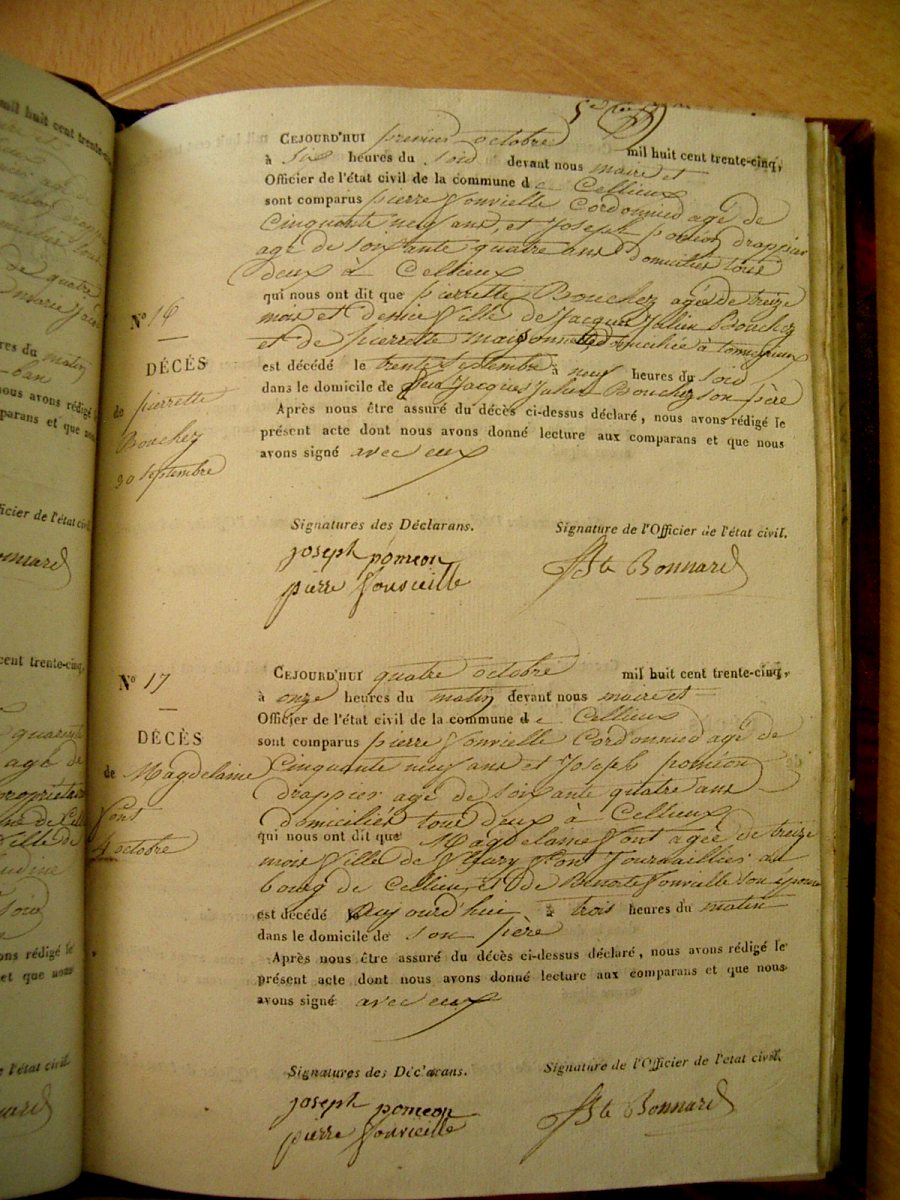 5
CEJOURD'HUI premier octobre mil huit cent trente-cinq,
à six heures du soir devant nous maire et
Officier de l'état civil de la commune de Cellieux
sont comparus pierre fonvielle Cordonnier agé de
Cinquante neuf ans, et Joseph poméon drappier
agé de soixante quatre ans domiciliés tous
deux à Cellieux
qui nous ont dit que pierrette Bouchez agée de treize
mois et demie fille de Jacques Julien Bouchez
et de pierrette
est décédé le trente septembre à neuf heures du soir
dans le domicile de Jacques Julien Bouchez son père
Après nous être assuré du décès ci-dessus déclaré, nous avons rédigé le
présent acte dont nous avons donné lecture aux comparans et que nous
avons signé avec eux
N° 16
DÉCÈS
de pierrette
Bouchez
30 septembre
Signatures des Déclarans. Signature de l'Officier de l'état civil.
joseph pomeon
pierre fonvieille Bonnard
N° 17
DÉCÈS
de Magdelaine
font
4 octobre
CEJOURD'HUI quatre octobre mil huit cent trente-cinq,
à onze heures du matin devant nous maire et
Officier de l'état civil de la commune de Cellieux
sont comparus pierre fonvielle Cordonnier agé de
Cinquante neuf ans et Joseph poméon
drappier agé de soixante quatre ans
domiciliés tous deux à Cellieux
qui nous ont dit que Magdelaine font agée de treize
mois fille de fleury font Journaillier au
bourg de Cellieux et de Benoite fonvielle son épouse
est décédé aujourd'hui à trois heures du matin
dans le domicile de son père
Après nous être assuré du décès ci-dessus déclaré, nous avons rédigé le
présent acte dont nous avons donné lecture aux comparans et que nous
avons signé avec eux
Signatures des Déclarans. Signature de l'Officier de l'état civil.
joseph pomeon
pierre fonvieille Bonnard